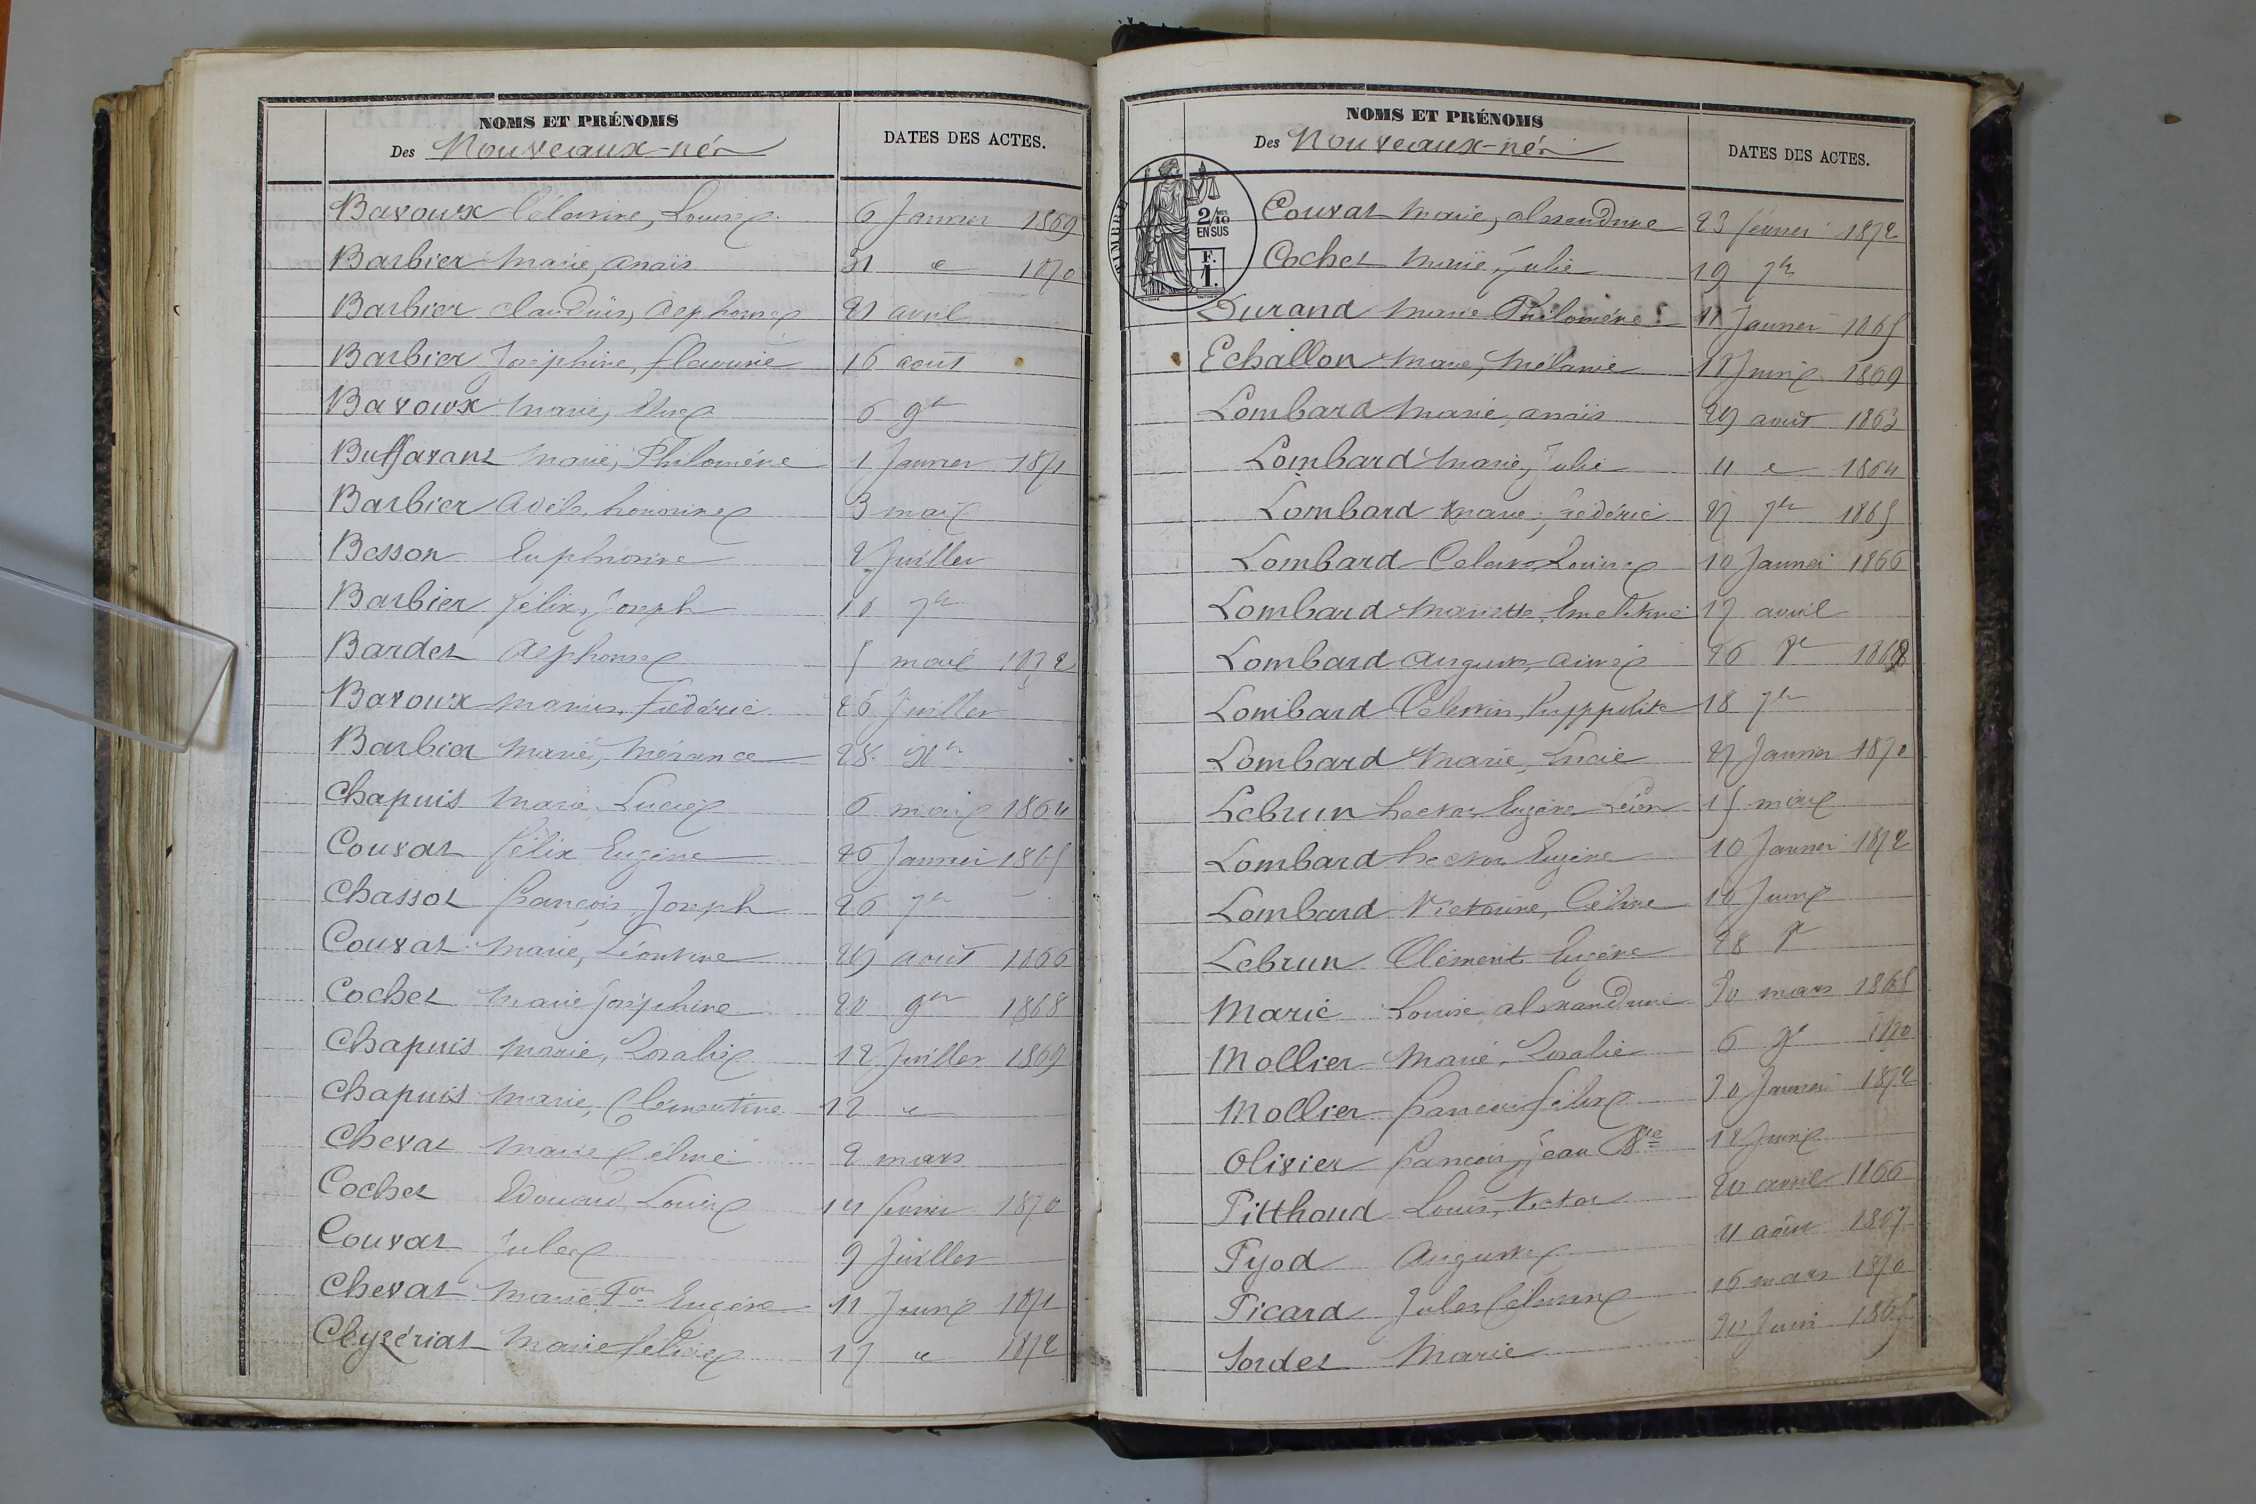 NOMS ET PRÉNOMS
Des Nouveaux-nés
DATES DES ACTES.
Bavoux Célestine, Louise 6 Janvier 1869
Barbier Marie, anaïs 31 " 1870
Barbier Claudius, Alphonse 21 avril
Barbier Joséphine, fleurine 16 août
Bavoux Marie, 6 9bre
Buffavant Marie, Philomène 1 Janvier 1871
Barbier Adèle, honorine 3 mai
Besson Euphrosine 2 Juillet
Barbier félix, Joseph 10 7bre
Bardet Alphonse 5 mai 1872
Bavoux Marius, frédéric 26 Juillet
Barbier Marie, Mérance 28
Chapuis Marie, Lucie 6 mai 1864
Couvat félix Eugène 20 Janvier 1865
Chassot françois, Joseph 26 7bre
Couvat Marie, Léontine 29 août 1866
Cochet Marie Joséphine 20 9bre 1868
Chapuis Marie, Rosalie 12 Juillet 1869
Chapuis Marie, Clémentine 12 "
Chevat Marie Céline 2 mars
Cochet Edouard, Louis 14 février 1870
Couvat Jules 9 Juillet
Chevat Marie, Eugène 11 Juin 1871
Cleyzériat Marie félicie 17 " 1872
NOMS ET PRÉNOMS
Des Nouveaux-nés
DATES DES ACTES.
TIMBRE
2/10
EN SUS
F.
1.
Couvat Marie, alexandrine 23 février 1872
Cochet Marie, Julie 19 7bre
Durand Marie Philomène 11 Janvier 1865
Echallon Marie, Mélanie 11 Juin 1869
Lombard Marie, anaïs 29 août 1863
Lombard Marie, Julie 4 " 1864
Lombard Marie, frédéric 27 7bre 1865
Lombard Célestine, Louise 10 Janvier 1866
Lombard Mariette, Emelitine 17 avril
Lombard Auguste, Aimé 26 1868
Lombard Célestin, hyppolite 18 7bre
Lombard Marie, Lucie 27 Janvier 1870
Lebrun hector Eugène Léon 15 mai
Lombard hector Eugène 10 Janvier 1872
Lombard Victorine, Céline 10 Juin
Lebrun Clément Eugène 28
Marie Louise alexandrine 30 mars 1865
Mollier Marie, Rosalie 6 9bre 1870
Mollier françois félix 30 Janvier 1872
Olivier françois, jean Bte 12 Juin
Pitthoud Louis, Victor 20 avril 1866
Pyod Auguste 4 août 1867
Picard Jules Célestin 16 mars 1870
Sordet Marie 20 Juin 1865